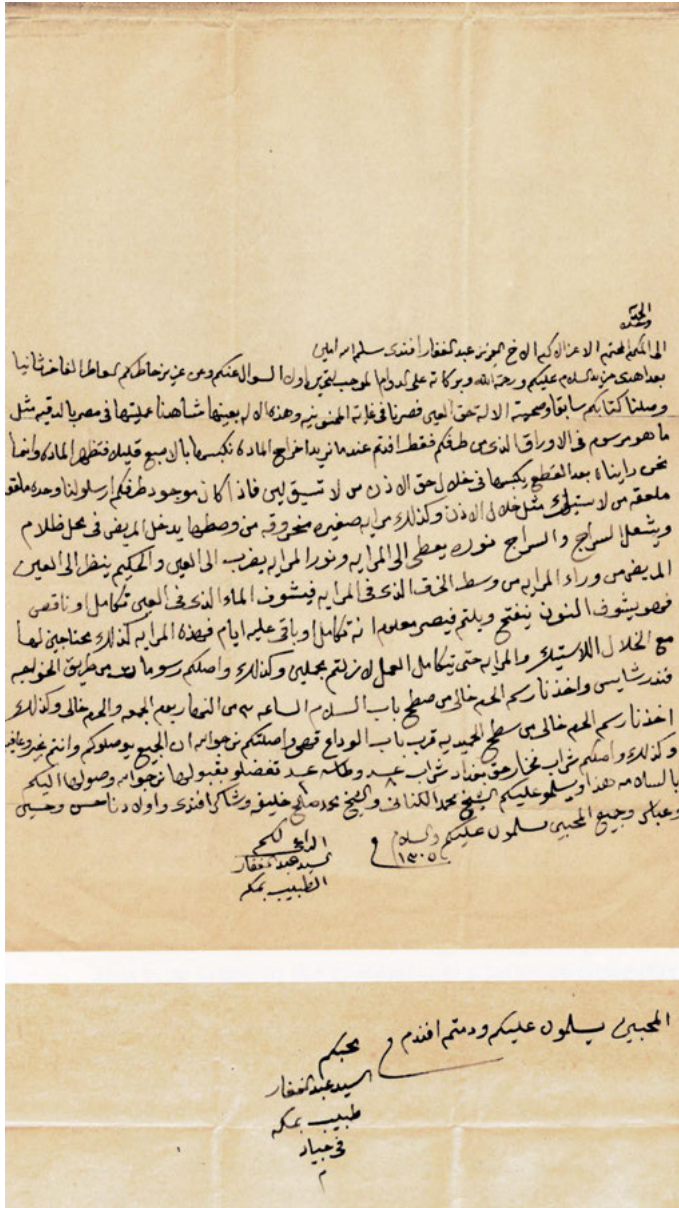 الحمد لله
وحده
الى المكرم المحترم الاعز الاكرم الاخ العزيز عبد الغفار افندى سلمه الله امين
بعد اهدى مزيد السلام عليكم ورحمة الله وبركاته على الدوام الموجب لتحرير اولا السوال عنكم وعن عزيز خاطركم الفاخر ثانيا
وصلنا كتابكم سابقا وصحبته الالة حق العين فصرنا فى غاية الممنونيه وهذه الاله بعينها شاهدنا عمليتها فى مصر بالدقيه مثل
ما هو مرسوم فى الاوراق الذى من طرفكم فقط افندم عندما نريد اخراج الماده نكبسها بالاصبع قليلا فتظهر الماده وانما
نحن راينا بعد القطع يكبسها فى خلال حق الاذن من لاستيق لين فاذا كان موجود طرفكم ارسلو لنا وحده
ملعقه من لاستيك مثل خلال الاذن وكذلك مرايه صغيره مخروقه من وصطها يدخل المريض فى محل ظلام
ويشعل السراج والسراج نوره يعطى الى المرايه ونور المرايه يضرب الى العين والحكيم ينظر الى العين
المريض من وراء المرايه من وسط الخرق الذى فى المرايه فيشوف الماء الذى فى العين تكامل او ناقص
فهو يشوف النون ينفتح ويلتم فيصير معلوم انه تكامل او باقى عليه ايام فهذه المرايه كذلك محتاجين لها
مع الخلال اللاستيك والمرايه حتى يتكامل العمل وكذلك واصلكم رسومات من طريق الخواجه
واخذنا رسم الحرم خالى من صطح باب السلام الساعه ٣ من النهار يوم الجمعه والحرم خالى وكذلك
اخذنا رسم الحرم خالى من سطح الحميديه قرب باب الوداع واصلتكم نرجو الله ان الجميع يوصلوكم وانتم بخير وعافيه
وكذلك واصلكم شراب فخار حق بغداد شراب عدد ٨ وطاسه عدد تفضلو بقبولها نرجو الله وصولها اليكم
بالسلامه هذا ويسلمو عليكم الشيخ محمد الكنانى والشيخ محمد صالح خليفه وشاكر افندى واولادنا حسن وحسين
وعباس وجميع المحبين يسلمون عليكم والسلام
١٣٠٥
الداعى لكم
السيد عبد الغفار
الطبيب بمكه
المحبين يسلمون عليكم ودمتم افندم
محبكم
السيد عبد الغفار
طبيب بمكه
فى جياد
م